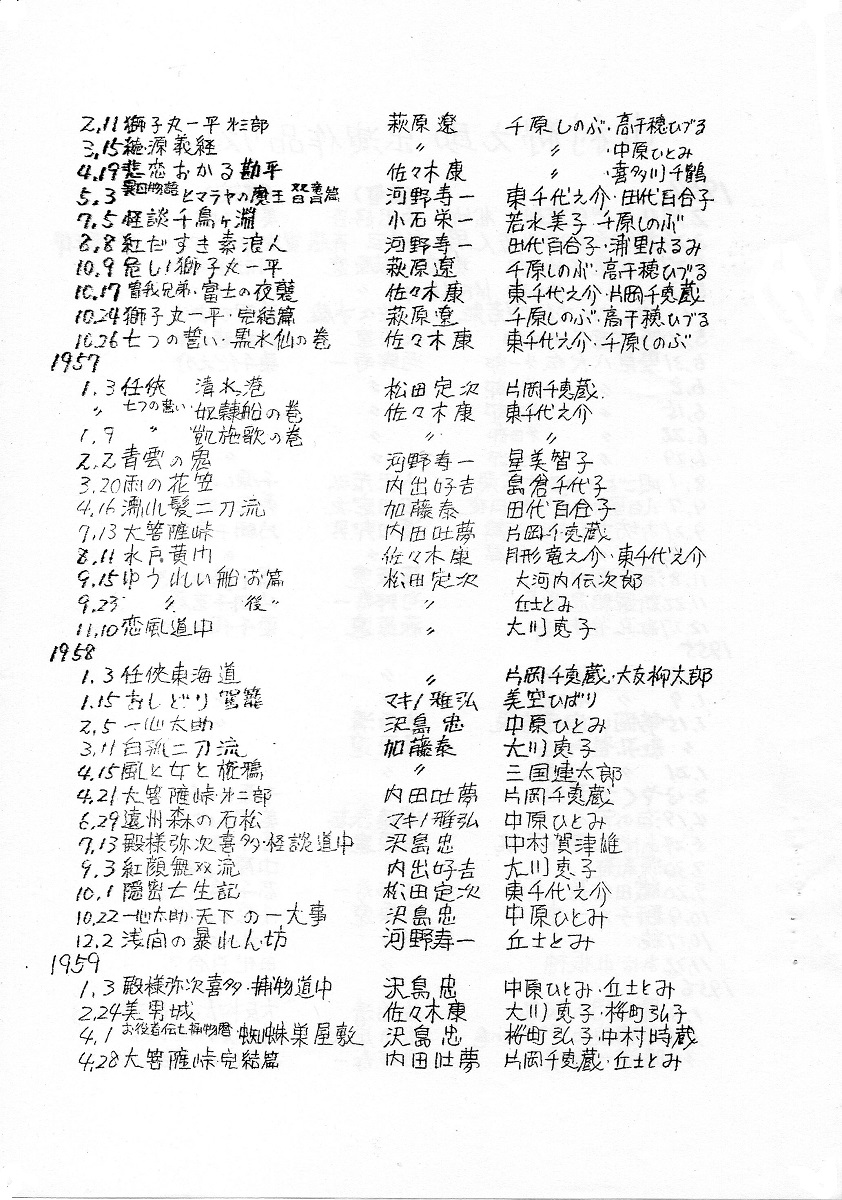 2.11 獅子丸一平 第三部 萩原遼 千原しのぶ・高千穂ひづる
3.15 続・源義経 〃 〃 ・中原ひとみ
4.19 悲恋おかる勘平 佐々木康 〃 ・喜多川千鶴
5.3 異国物語 ヒマラヤの魔王 双竜篇 河野寿一 東千代之介・田代百合子
7.5 怪談千鳥ヶ淵 小石栄一 若水美子・千原しのぶ
8.8 紅だすき素浪人 河野寿一 田代百合子・浦里はるみ
10.9 危し!獅子丸一平 萩原遼 千原しのぶ・高千穂ひづる
10.17 曽我兄弟・富士の夜襲 佐々木康 東千代之介・片岡千恵蔵
10.24 獅子丸一平・完結篇 萩原遼 千原しのぶ・高千穂ひづる
10.26 七つの誓い・黒水仙の巻 佐々木康 東千代之介・千原しのぶ
1957
1.3 任侠 清水港 松田定次 片岡千恵蔵
〃 七つの誓い・奴隷船の巻 佐々木康 東千代之介
1.9 〃 凱旋歌の巻 〃 〃
2.2 青雲の鬼 河野寿一 星美智子
3.20 雨の花笠 内出好吉 島倉千代子
4.16 濡れ髪二刀流 加藤泰 田代百合子
7.13 大菩薩峠 内田吐夢 片岡千恵蔵
8.11 水戸黄門 佐々木康 月形竜之介・東千代之介
9.15 ゆうれい船・お篇 松田定次 大河内伝次郎
9.23 〃 後〃 〃 丘さとみ
11.10 恋風道中 〃 大川恵子
1958
1.3 任侠東海道 〃 片岡千恵蔵・大友柳太郎
1.15 おしどり駕籠 マキノ雅弘 美空ひばり
2.5 一心太助 沢島忠 中原ひとみ
3.11 白狐二刀流 加藤泰 大川恵子
4.15 風と女と旅鴉 〃 三国連太郎
4.21 大菩薩峠・第二部 内田吐夢 片岡千恵蔵
6.29 遠州森の石松 マキノ雅弘 中原ひとみ
7.13 殿様弥次喜多・怪談道中 沢島忠 中村賀津雄
9.3 紅顔無双流 内出好吉 大川恵子
10.1 隠密七生記 松田定次 東千代之介
10.22 一心太助・天下の一大事 沢島忠 中原ひとみ
12.2 浅間の暴れん坊 河野寿一 丘さとみ
1959
1.3 殿様弥次喜多・捕物道中 沢島忠 中原ひとみ・丘さとみ
2.24 美男城 佐々木康 大川恵子・桜町弘子
4.1 お役者伝七捕物暦・蜘蛛巣屋敷 沢島忠 桜町弘子・中村時蔵
4.28 大菩薩峠完結篇 内田吐夢 片岡千恵蔵・丘さとみ